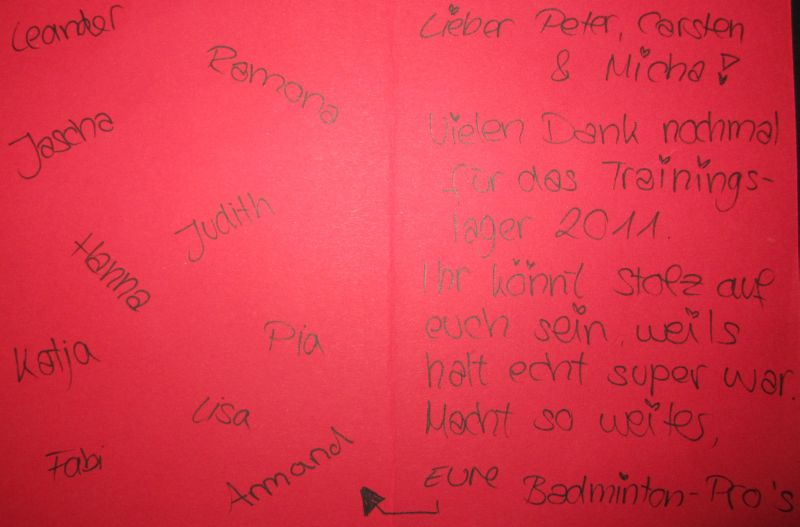 Leander
Ramona
Jascha
Judith
Hanna
Pia
Katja
Lisa
Fabi
Armand
Lieber Peter, Carsten
& Micha!
Vielen Dank nochmal
für das Trainings-
lager 2011.
Ihr könnt stolz auf
euch sein, weils
halt echt super war.
Macht so weiter,
Eure Badminton-Pro's